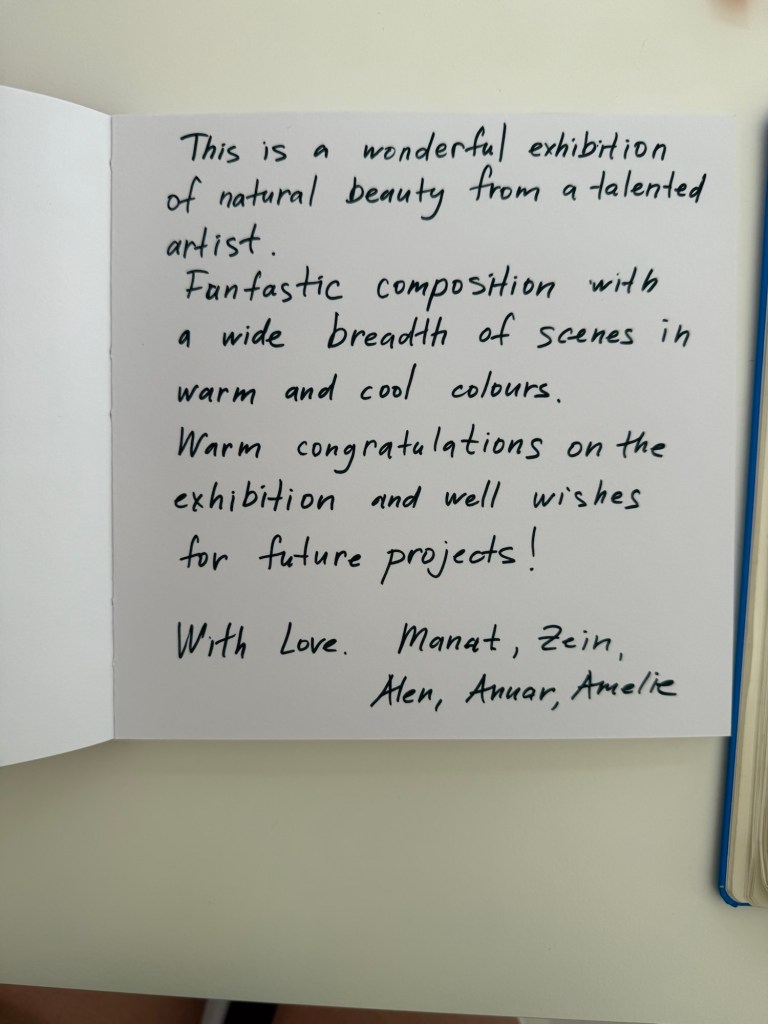 This is a wonderful exhibition
of natural beauty from a talented
artist.
Fantastic composition with
a wide breadth of scenes in
warm and cool colours.
Warm congratulations on the
exhibition and well wishes
for future projects!
With Love. Manat, Zein,
Alen, Anuar, Amelie